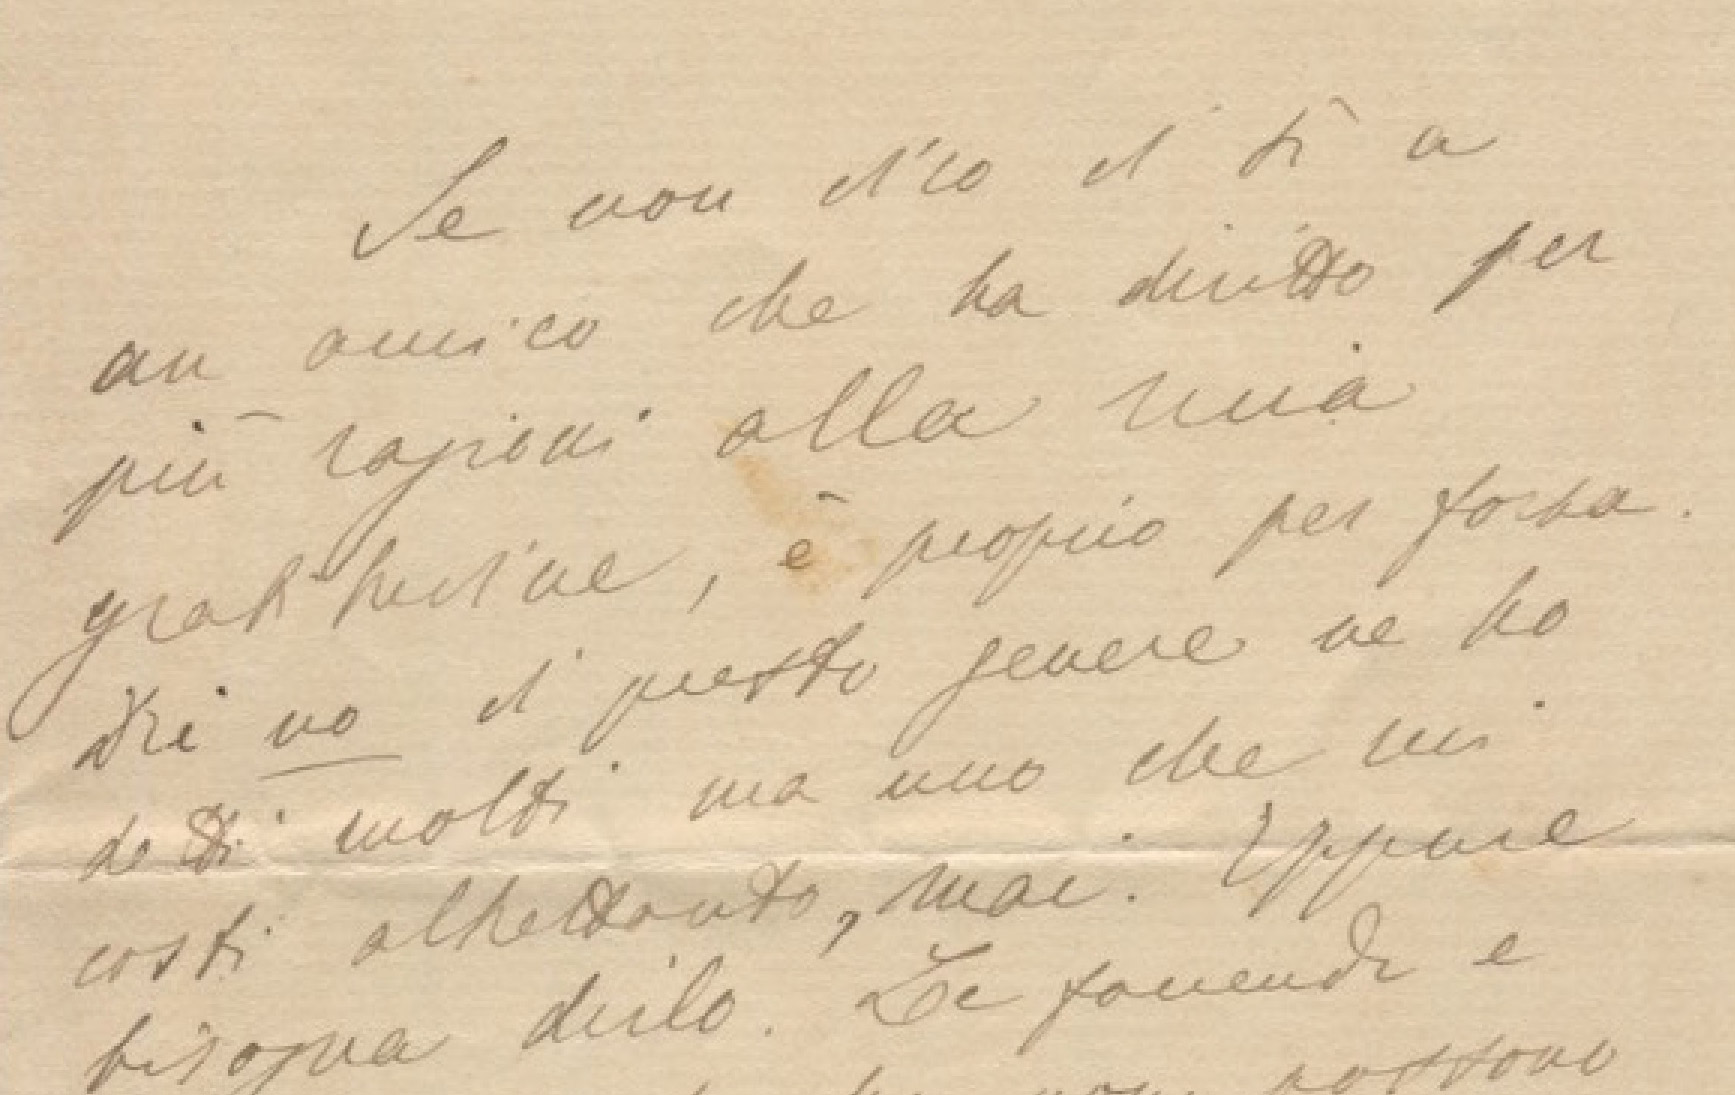 Se non dico di sì a
un amico che ha diritto per
più ragioni alla mia
gratitudine, è proprio per forza.
Dei no di questo genere ne ho
detti molti ma uno che mi
costi altrettanto, mai. Eppure
bisogna dirlo. Le faccende
non possono